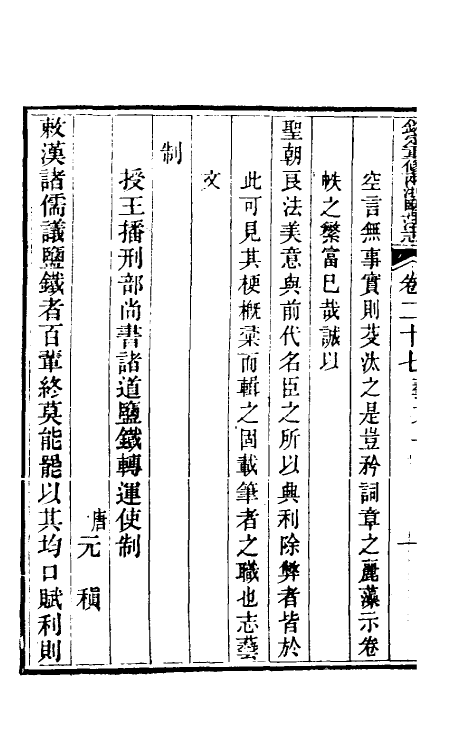 欽定重修兩浙鹽法志 卷二十七 藝文一
空言無事實則芟汰之是豈矜詞章之麗藻示卷
帙之繁富巳哉誠以
聖朝良法美意與前代名臣之所以興利除弊者皆於
此可見其梗概彙而輯之固載筆者之職也志藝
文
制
授王播刑部尚書諸道鹽鐵轉運使制
唐元稹
敕漢諸儒議鹽鐵者百輩終莫能罷以其均口賦利則